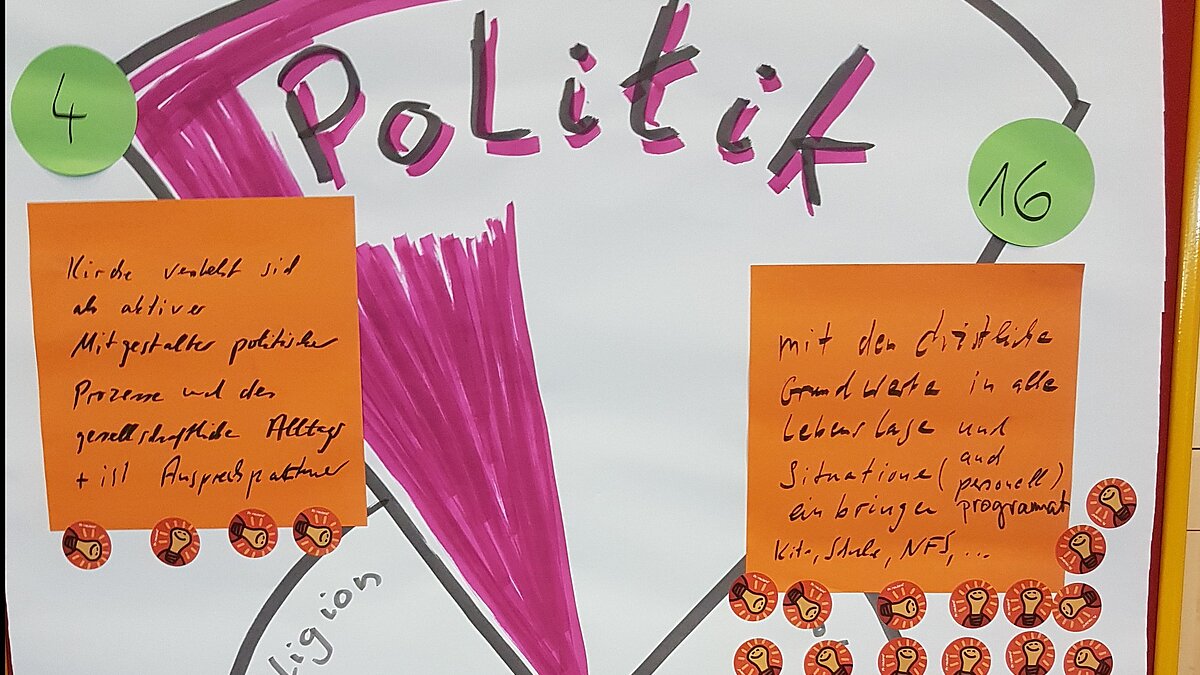 Politik
4
16
Kirche versteht sich
als aktiver
Mitgestalter politischer
Prozesse und des
gesellschaftliche Alltags
+ ist Ansprechpartner
mit den christliche
Grundwerte in alle
Lebenslage und
Situatione (und personell)
einbringen programmat
Kita, Schule, NFS, ...
ligion